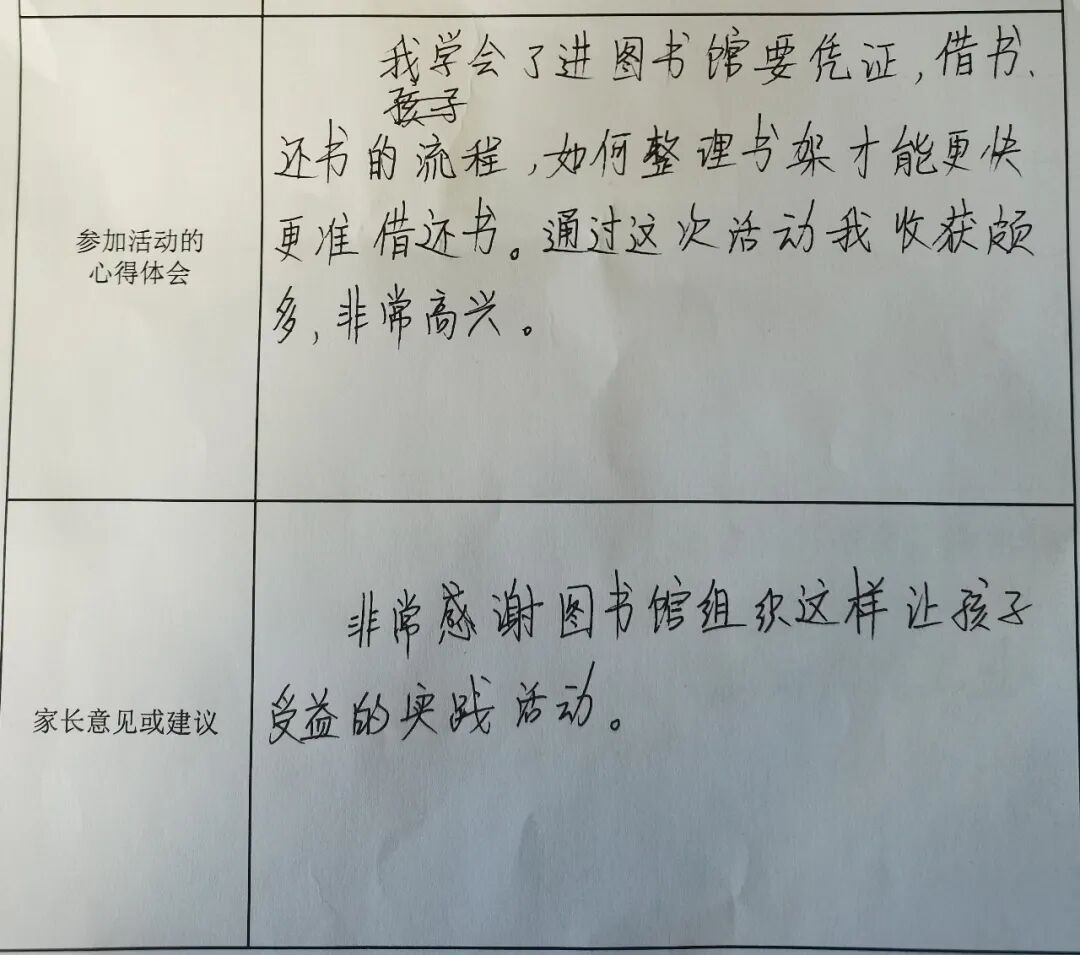 我学会了进图书馆要凭证,借书、
孩子
还书的流程,如何整理书架才能更快
更准借还书。通过这次活动我收获颇
多,非常高兴。
参加活动的
心得体会
非常感谢图书馆组织这样让孩子
受益的实践活动。
家长意见或建议